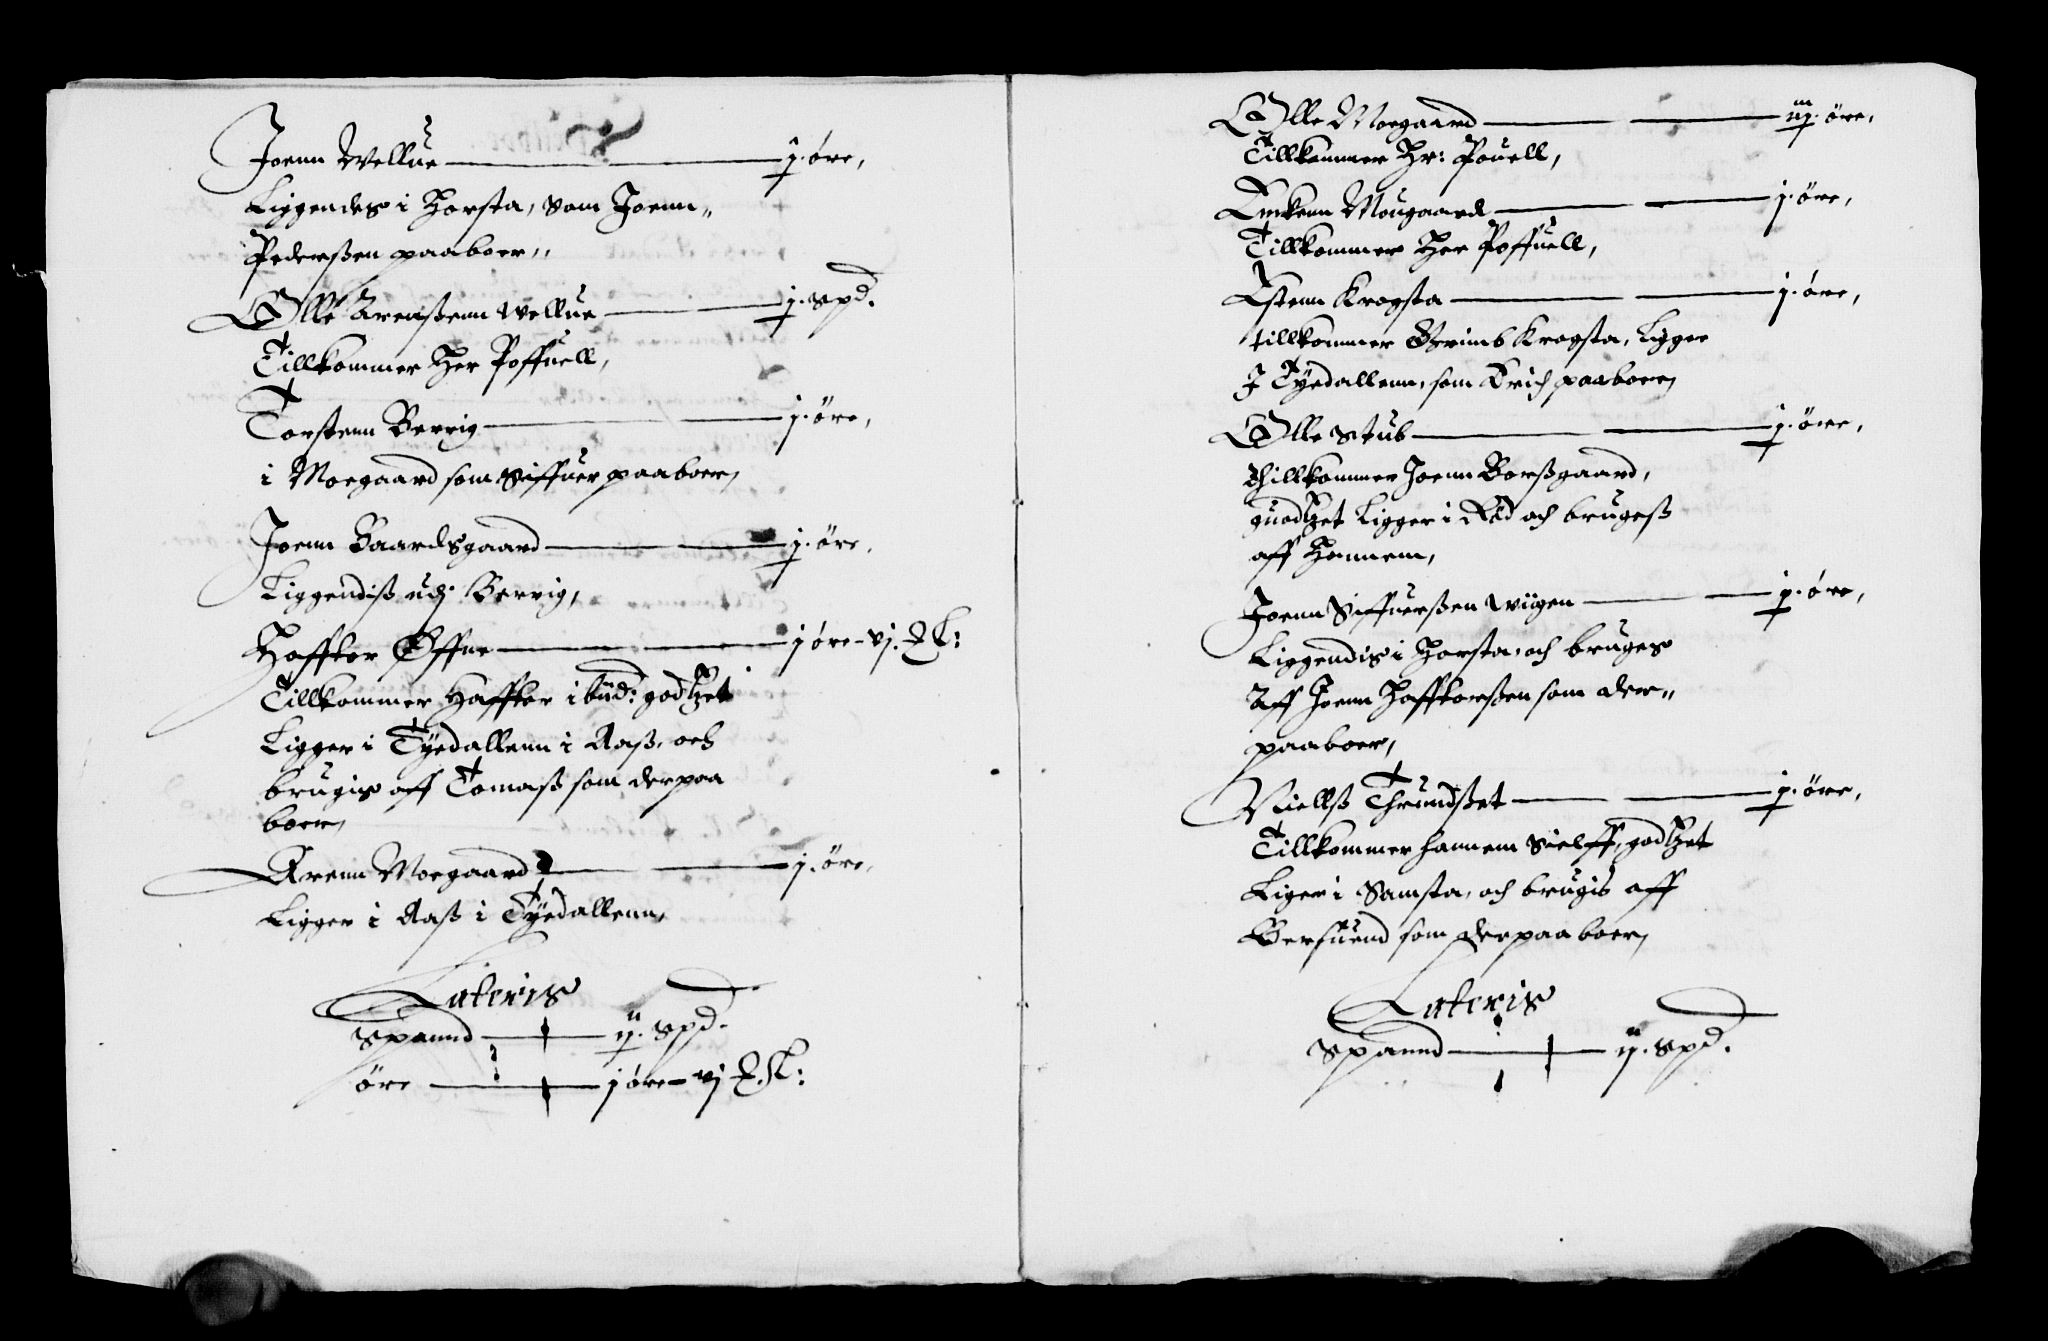 Joenn Wellue — j. øre,
Liggendes i Horsta, som Joenn„
Pederßen paaboer„
Olle Arenßenn Wellue — j. spd.
Tillkommer Her Poffuell,
Torstenn Berrig — j. øre,
i Moegaard som Siffuer paaboer,
Joenn Baardsgaard — j. øre,
Liggendiß udj Berrig,
Hafftor Øffue — j øre – vj.
Tillkommer Hafftor ibüd: godtzet
Ligger i Tÿedallenn i Aaß, och
brugis aff Tomaß som der paa
boer,
Arenn Moegaard — j. øre,
Ligger i Aaß i Tÿedallenn,
Lateris
Spannd — ij. spd.
øre — j øre – vj
Olle Moegaard — iij. øre,
Tillkommer Hr: Pouell,
Enkenn Mougaard — j. øre,
Tillkommer Her Poffuell,
Estenn Krogsta — j. øre,
tillkommer Grimb Krogsta, Ligger
I Tÿedallenn, som Erich paaboer,
Olle Stub — j. øre,
thillkommer Joenn Borßgaard,
guodtzet Ligger i Rød och brugeß
aff Hannem,
Joenn Siffuerßen Wiigen — j. øre,
Liggendis i Horsta, och bruges
Aff Joenn Haffthorßen som der„
paaboer,
Nielß Thrundßet — j. øre,
Tillkommer hannem Sielff, godtzet
Liger i Samsta, och brugis aff
Bersuend som der paa boer,
Lateris
Spannd — ij. spd.